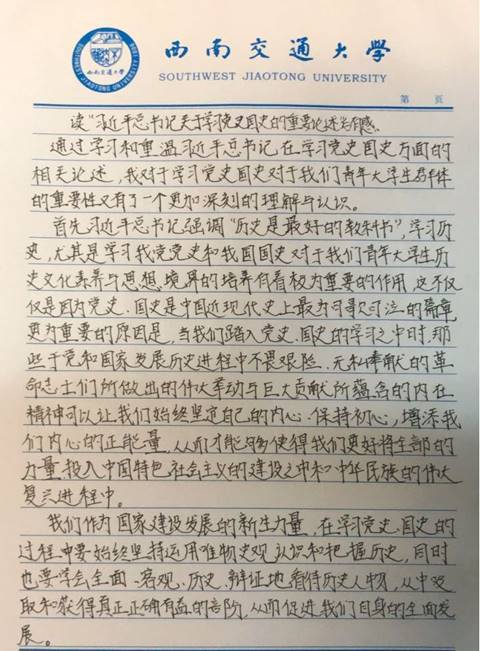 西南交通大学
SOUTHWEST JIAOTONG UNIVERSITY
第 页
读"习近平总书记关于学习党史国史的重要论述"有感。
通过学习和重温习近平总书记在学习党史国史方面的
相关论述，我对于学习党史国史对于我们青年大学生群体
的重要性又有了一个更加深刻的理解与认识。
首先习近平总书记强调"历史是最好的教科书"，学习历
史，尤其是学习我党党史和我国国史对于我们青年大学生历
史文化素养与思想境界的培养有着极为重要的作用，这不仅
仅是因为党史、国史是中国近现代史上最为可歌可泣的篇章，
更为重要的原因是，当我们踏入党史、国史的学习之中时，那
些于党和国家发展历史进程中不畏艰险、无私奉献的革
命志士们所做出的伟大举动与巨大贡献所蕴含的内在
精神可以让我们始终坚定自己的内心、保持初心，增添我
们内心的正能量，从而才能够使得我们更好将全部的
力量投入中国特色社会主义的建设之中和中华民族的伟大
复兴进程中。
我们作为国家建设发展的新生力量，在学习党史、国史的
过程中要始终坚持运用唯物史观认识和把握历史，同时
也要学会全面、客观、历史、辩证地看待历史人物，从中汲
取和获得真正正确有益的部分，从而促进我们自身的全面发
展。